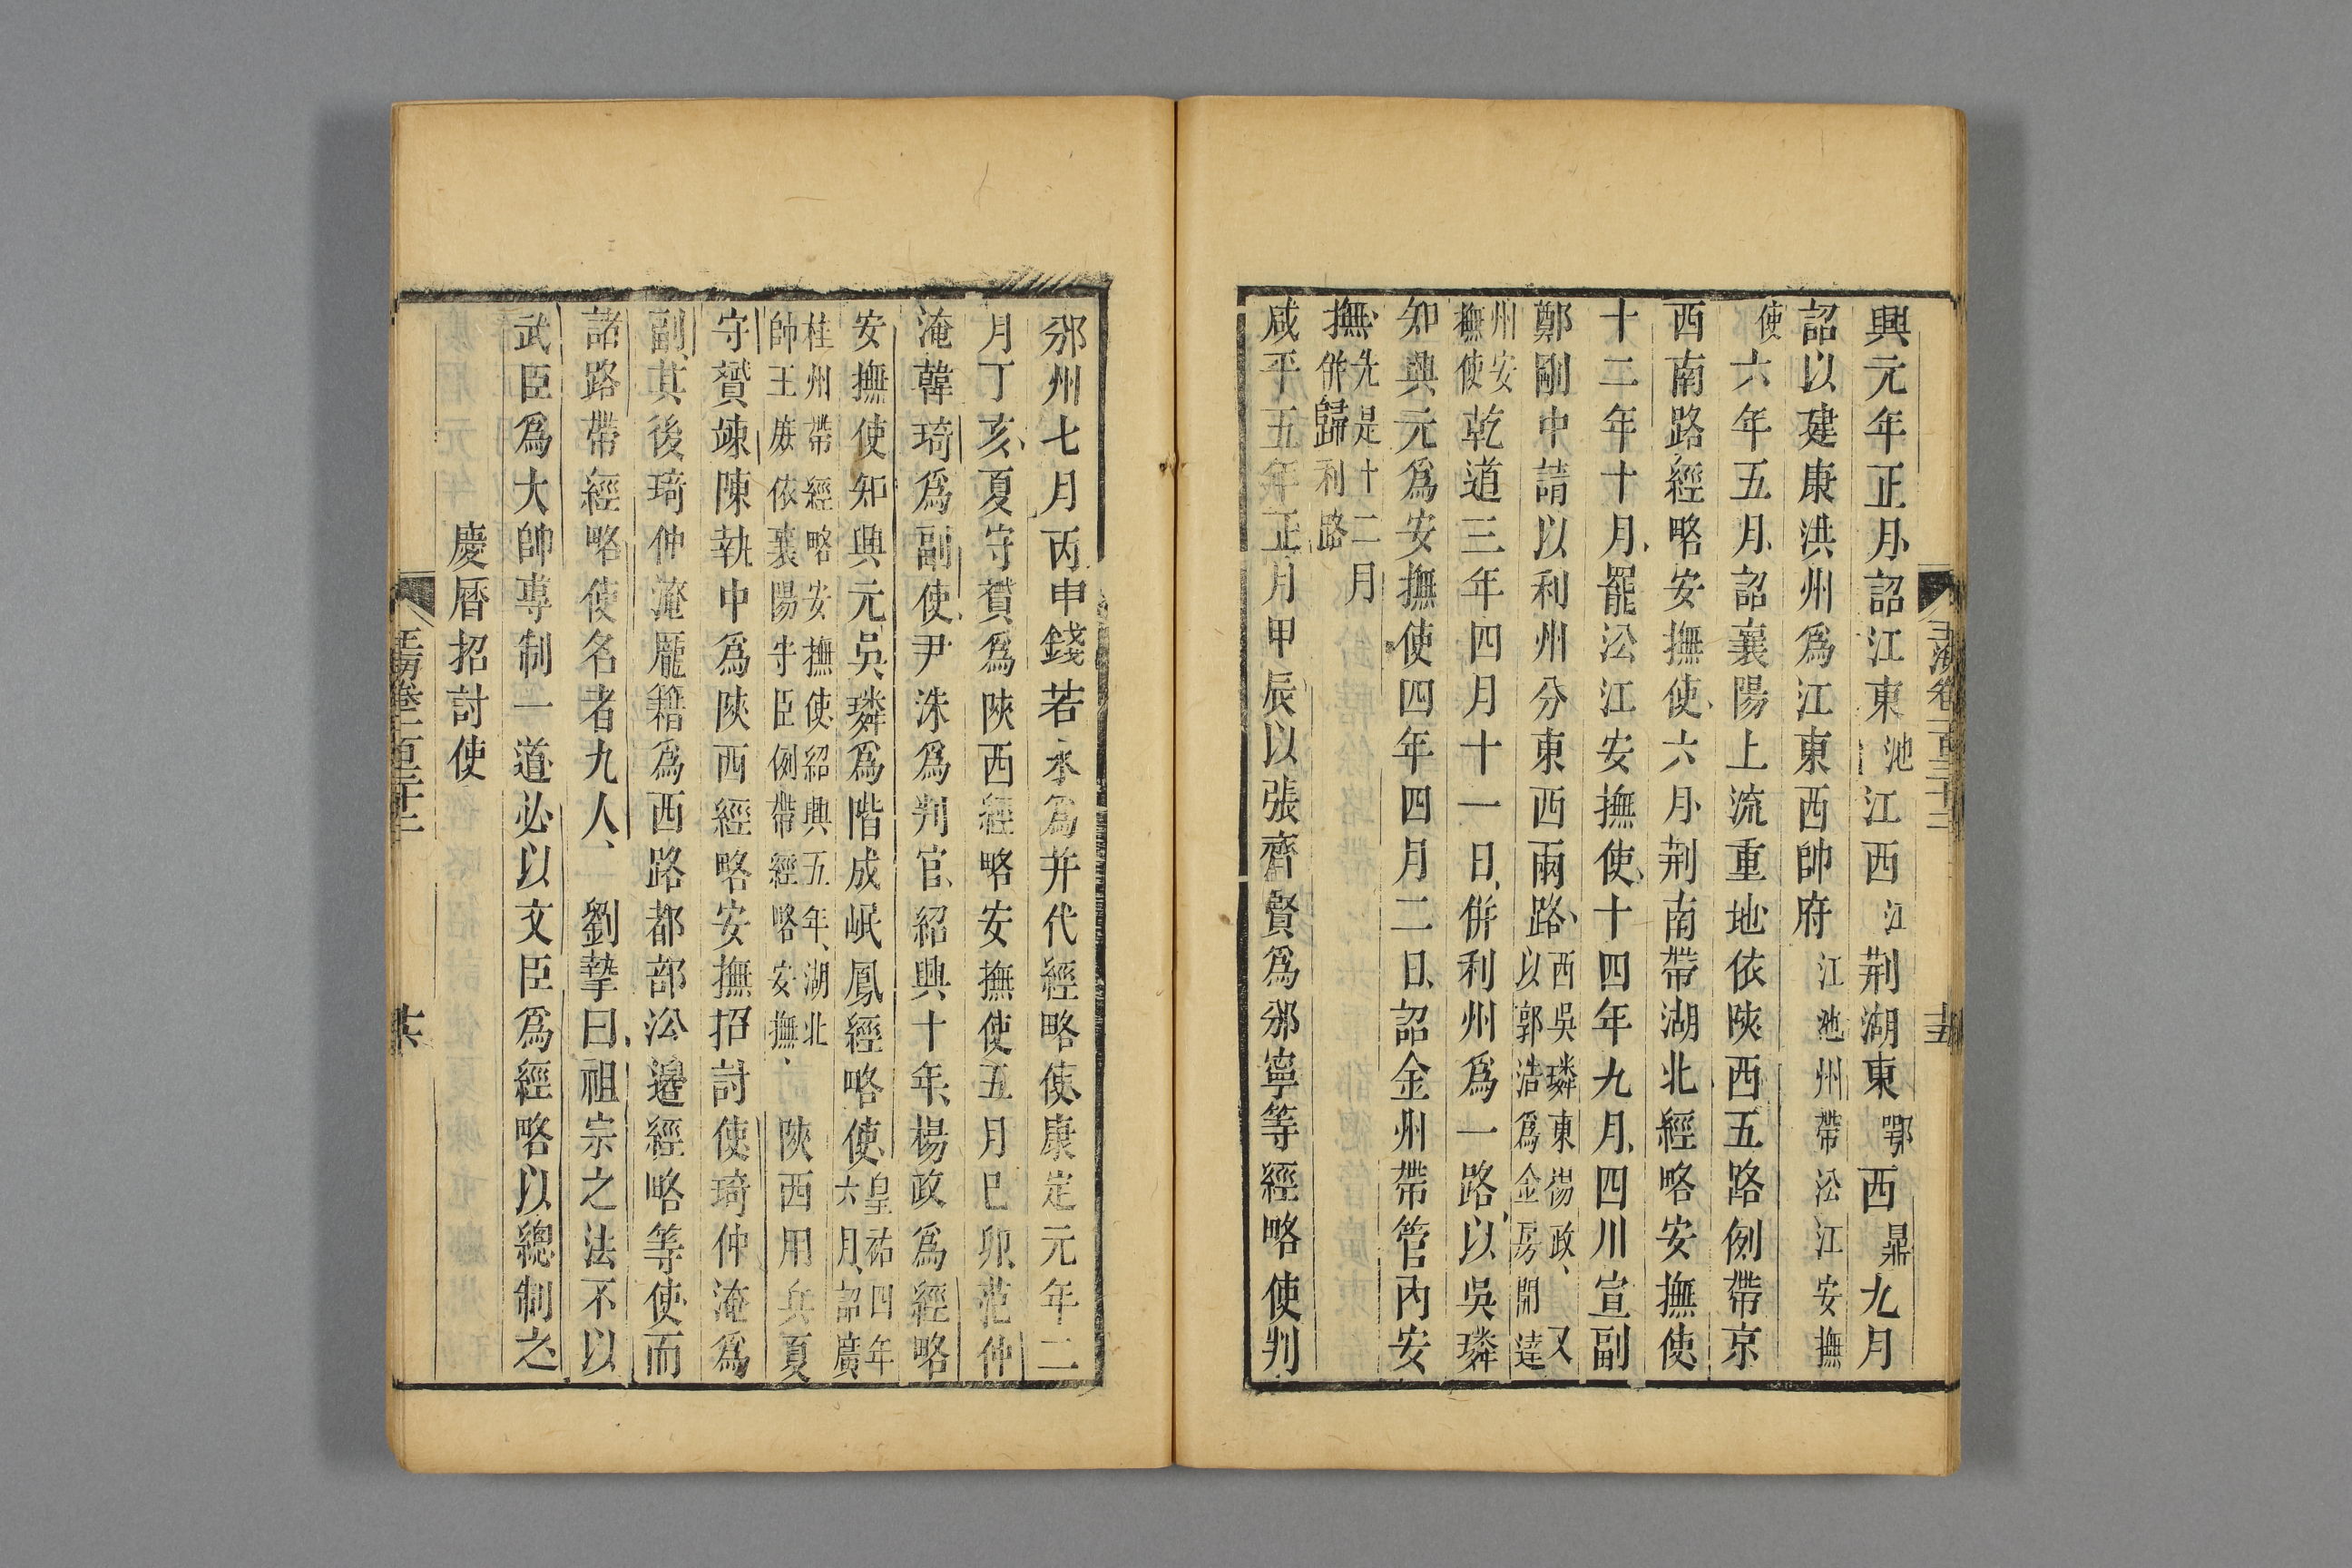 玉海卷一百三十二
十五
興元年正月詔江東池江西江荆湖東鄂西鼎九月
詔以建康洪州爲江東西帥府江池州帶沿江安撫
使六年五月詔襄陽上流重地依陝西五路例帶京
西南路經略安撫使六月荆南帶湖北經略安撫使
十二年十月罷沿江安撫使十四年九月四川宣副
鄭剛中請以利州分東西兩路西吳璘東楊政又以郭浩爲金房開達
州安撫使乾道三年四月十一日併利州爲一路以吳璘
知興元爲安撫使四年四月二日詔金州帶管內安
撫先是十二月併歸利路
咸平五年正月甲辰以張齊賢爲邠寧等經略使判
邠州七月丙申錢若水爲并代經略使康定元年二
月丁亥夏守贇爲陝西經略安撫使五月己卯范仲
淹韓琦爲副使尹洙爲判官紹興十年楊政爲經略
安撫使知興元吳璘爲階成岷鳳經略使皇祐四年六月詔廣
桂州帶經略安撫使紹興五年湖北帥王庶依襄陽守臣例帶經略安撫陝西用兵夏
守贇竦陳執中爲陝西經略安撫招討使琦仲淹爲
副其後琦仲淹龎籍爲西路都部沿邊經略等使而
諸路帶經略使名者九人劉摯曰祖宗之法不以
武臣爲大帥專制一道必以文臣爲經略以總制之
慶曆招討使
玉海卷一百三十二
十六